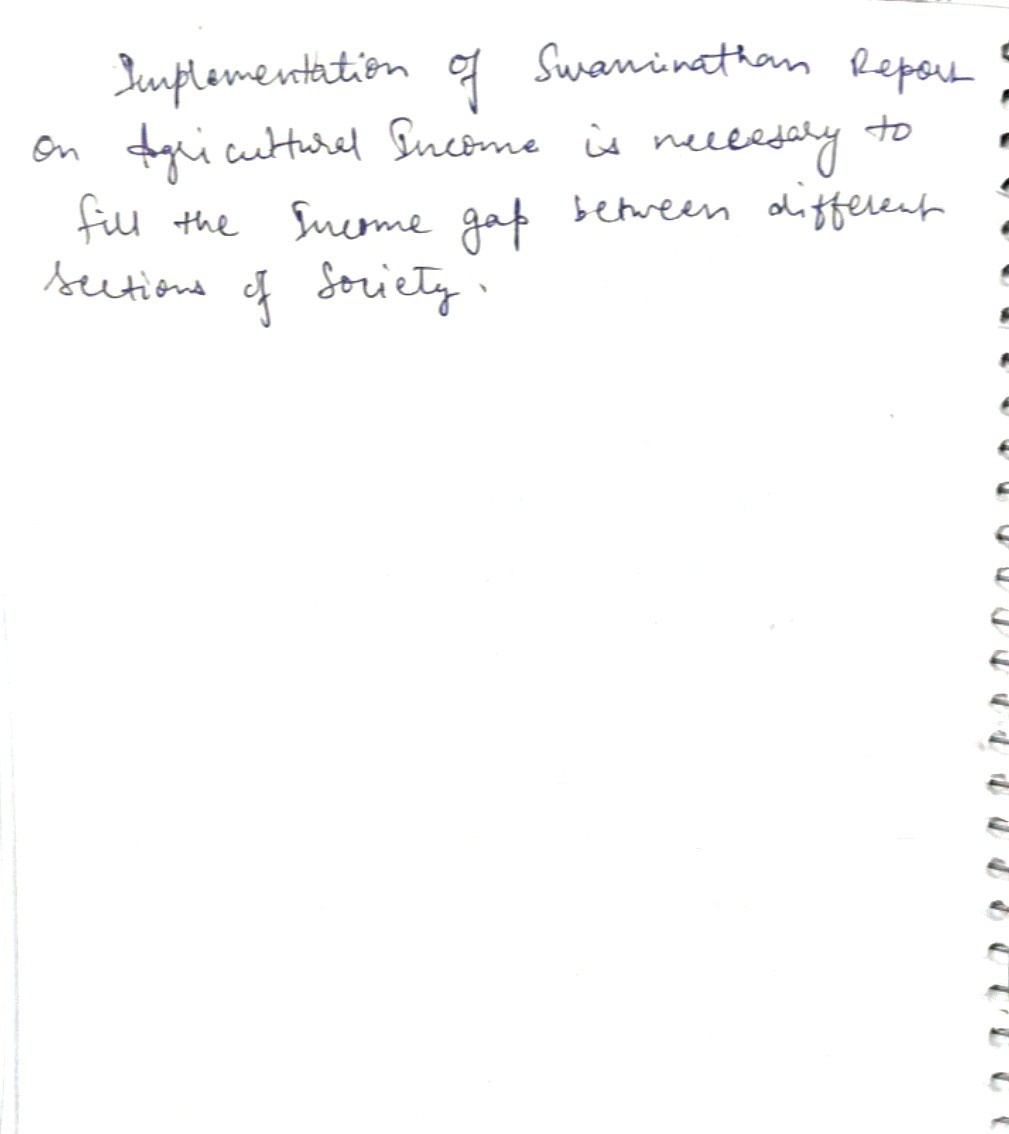 Implementation of Swaminathan Report
on Agricultural Income is necessary to
fill the Income gap between different
sections of Society.